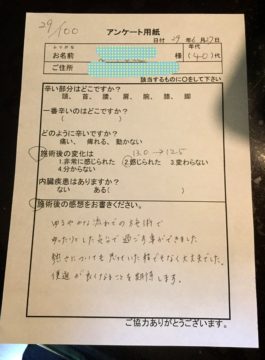 29/100
アンケート用紙
日付 29年6月12日
ふりがな
お名前 様
年代
(40)代
ご住所
該当するものに○をして下さい
辛い部分はどこですか?
頭、首、腰、肩、腕、膝、脚
一番辛いのはどこですか?
( )
どのように辛いですか?
痛い、痺れる、動かない
施術後の変化は 130→125
1.非常に感じられた 2.感じられた 3.変わらない
4.分からない
内臓疾患はありますか?
ない ある( )
施術後の感想をお書きください。
ゆるやかな流れでの施術で
ゆったりした気分で過ごす事ができました
熱さについても思っていた程でもなく大丈夫でした。
便通が良くなることを期待します。
ご協力ありがとうございます。